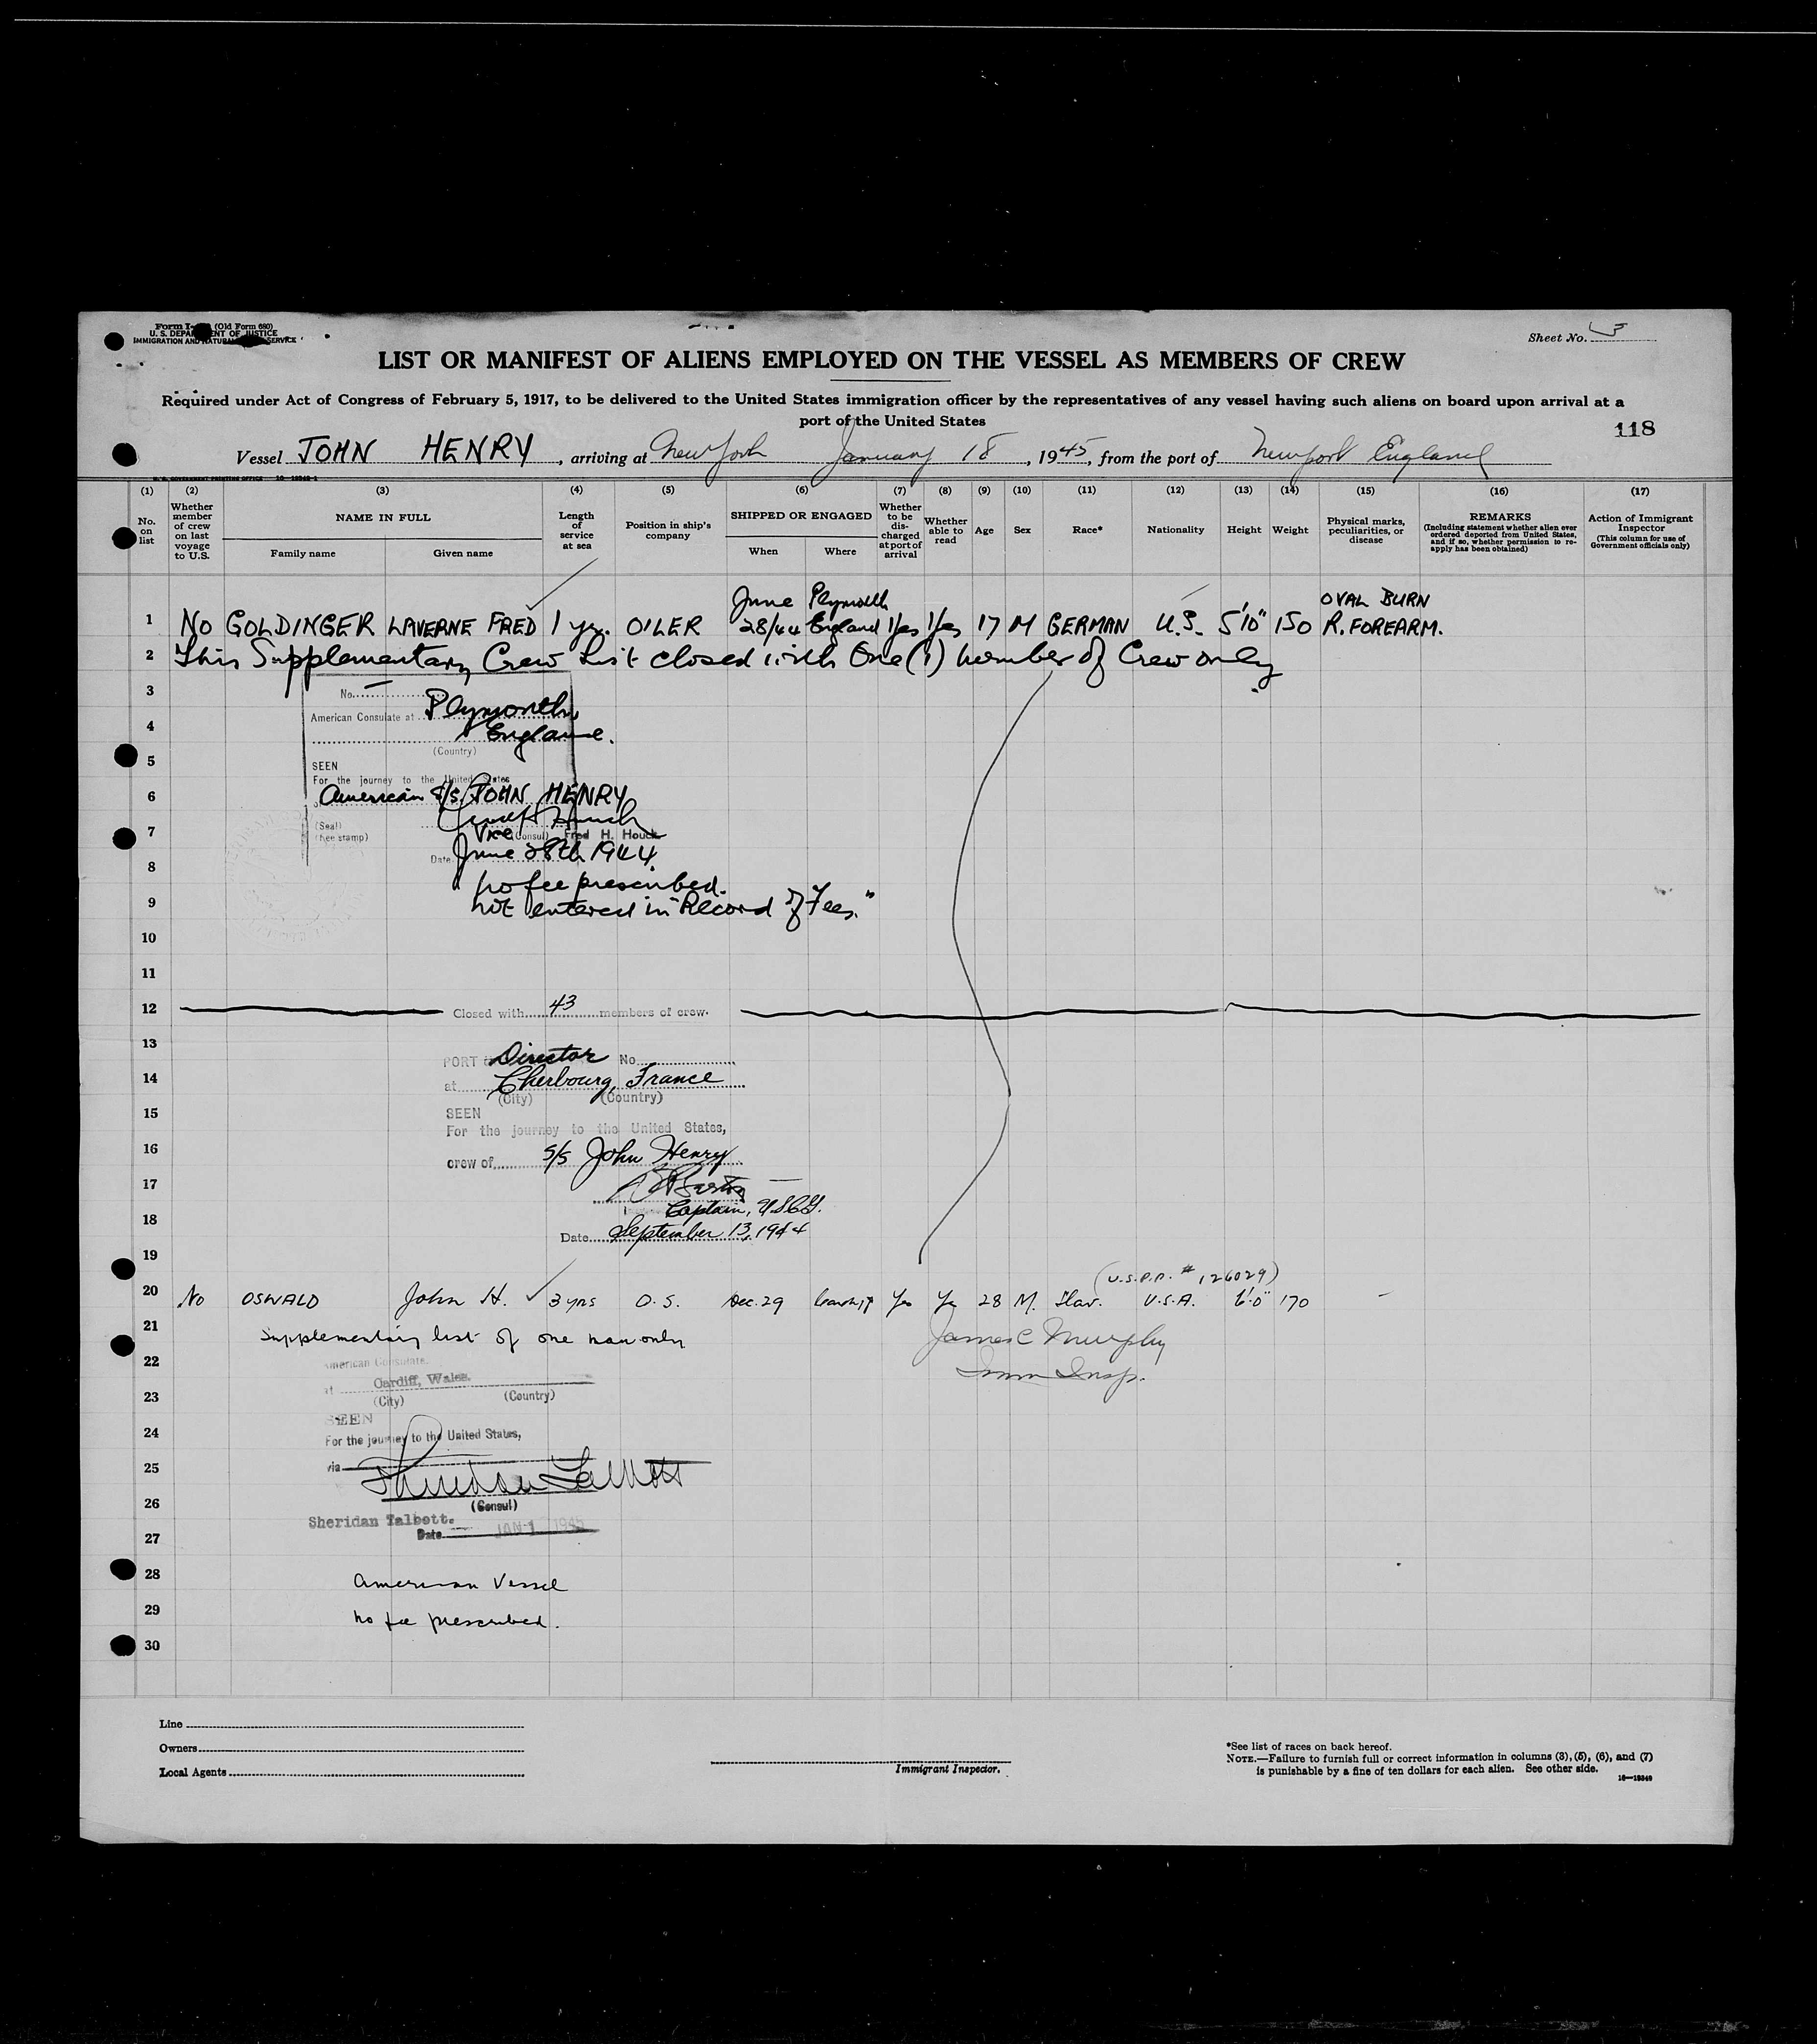 Form I- (Old Form 680)
U. S. DEPARTMENT OF JUSTICE
IMMIGRATION AND NATURALIZATION SERVICE
Sheet No.
LIST OR MANIFEST OF ALIENS EMPLOYED ON THE VESSEL AS MEMBERS OF CREW
Required under Act of Congress of February 5, 1917, to be delivered to the United States immigration officer by the representatives of any vessel having such aliens on board upon arrival at a
port of the United States
118
Vessel JOHN HENRY, arriving at New York January 18, 1945, from the port of Newport England
U. S. GOVERNMENT PRINTING OFFICE
(1) (2) (3) (4) (5) (6) (7) (8) (9) (10) (11) (12) (13) (14) (15) (16) (17)
No. on list
Whether member of crew on last voyage to U.S.
NAME IN FULL
Family name Given name
Length of service at sea
Position in ship's company
SHIPPED OR ENGAGED
When Where
Whether to be discharged at port of arrival
Whether able to read
Age
Sex
Race*
Nationality
Height
Weight
Physical marks, peculiarities, or disease
REMARKS
(Including statement whether alien ever ordered deported from United States, and if so, whether permission to reapply has been obtained)
Action of Immigrant Inspector
(This column for use of Government officials only)
June Plymouth OVAL BURN
1 No GOLDINGER LAVERNE FRED 1 yr. OILER 28/44 England Yes Yes 17 M GERMAN U.S. 5'10" 150 R. FOREARM.
2 This Supplementary Crew List closed with One (1) member of Crew only
3 No.
American Consulate at Plymouth,
4 England.
(Country)
5 SEEN
For the journey to the United States
6 American S/S JOHN HENRY
(Seal)
7 (Fee stamp) Vice (Consul) Fred H. Houck
Date June 28th 1944
8
no fee prescribed.
9 not entered in "Record of Fees."
10
11
12 Closed with 43 members of crew.
13
PORT Director No.
14 at Cherbourg, France
(City) (Country)
15 SEEN
For the journey to the United States,
16 crew of S/S John Henry
17
Captain, USCG.
18
Date September 13, 1944
19
(U.S.P.P. # 126029)
20 No OSWALD John H. 3 yrs O.S. Dec. 29 Yes Yes 28 M. Slav. U.S.A. 6'0" 170 -
21 Supplementary list of one man only James C Murphy
22 American Consulate. Imm Insp.
at Cardiff, Wales.
23 (City) (Country)
SEEN
24 For the journey to the United States,
25 via Sheridan Talbott
26 (Consul)
Sheridan Talbott.
27 Date JAN-1 1945
28 American Vessel
29 no fee prescribed.
30
Line
Owners
Local Agents
Immigrant Inspector.
*See list of races on back hereof.
NOTE.—Failure to furnish full or correct information in columns (3), (5), (6), and (7)
is punishable by a fine of ten dollars for each alien. See other side.
16—19349